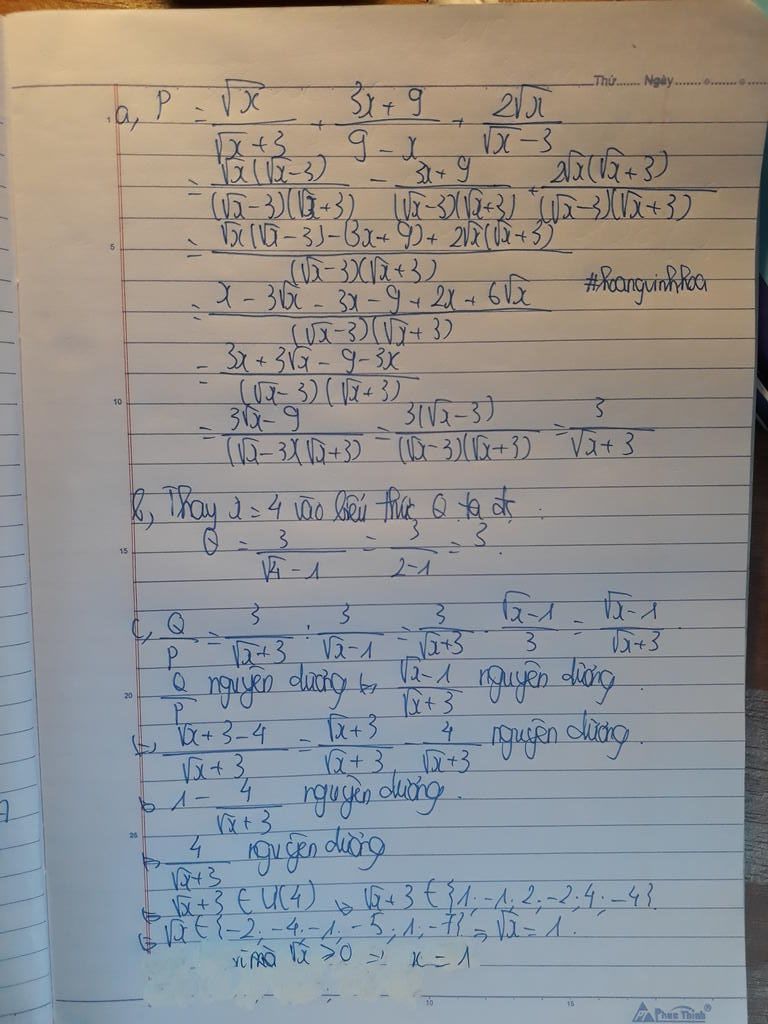 Thứ....... Ngày.......
a, P = √x/(√x+3) + (3x+9)/(9-x) + 2√x/(√x-3)
= √x(√x-3)/((√x-3)(√x+3)) - (3x+9)/((√x-3)(√x+3)) + 2√x(√x+3)/((√x-3)(√x+3))
= (√x(√x-3)-(3x+9)+2√x(√x+3))/((√x-3)(√x+3))
#hoangvinhhoa
= (x-3√x-3x-9+2x+6√x)/((√x-3)(√x+3))
= (3x+3√x-9-3x)/((√x-3)(√x+3))
= (3√x-9)/((√x-3)(√x+3)) = 3(√x-3)/((√x-3)(√x+3)) = 3/(√x+3)
b, Thay x=4 vào biểu thức Q ta đc :
Q = 3/(√4-1) = 3/(2-1) = 3.
c, Q/P = 3/(√x+3) : 3/(√x-1) = 3/(√x+3) . (√x-1)/3 = (√x-1)/(√x+3)
Q/P nguyên dương ⇔ (√x-1)/(√x+3) nguyên dương
⇔ (√x+3-4)/(√x+3) = (√x+3)/(√x+3) - 4/(√x+3) nguyên dương.
⇔ 1 - 4/(√x+3) nguyên dương.
⇔ 4/(√x+3) nguyên dương
⇔ √x+3 ∈ Ư(4) ⇔ √x+3 ∈ {1;-1;2;-2;4;-4}
⇔ √x ∈ {-2;-4;-1;-5;1;-7} ⇒ √x = 1.
vì mà √x ≥ 0 ⇒ x = 1
5
10
15
20
25
10
15
Phúc Thịnh